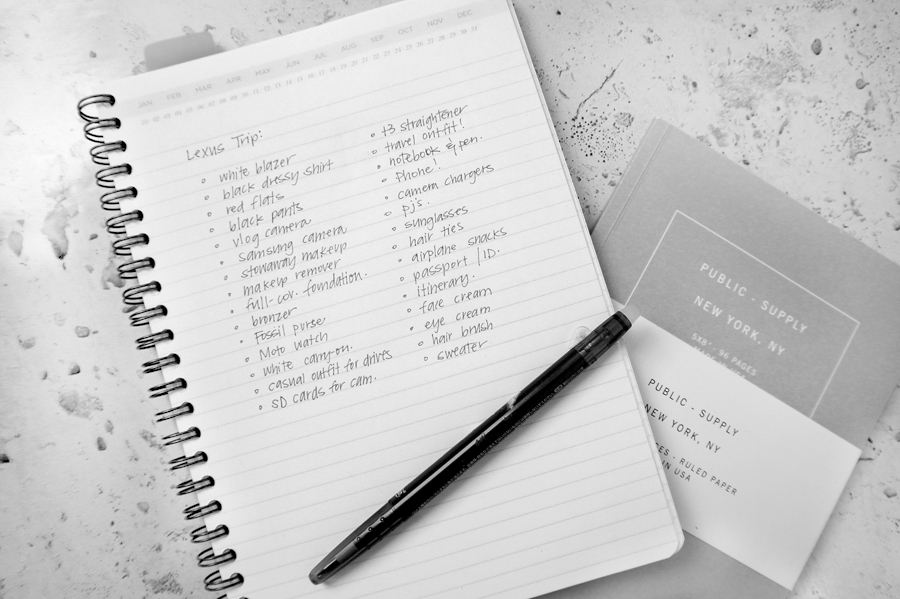 JAN FEB MAR APR MAY JUN JUL AUG SEP OCT NOV DEC
Lexus Trip:
• white blazer
• black dressy shirt
• red flats
• black pants
• vlog camera
• samsung camera
• stowaway makeup
• makeup remover
• full-cov. foundation.
• bronzer
• Fossil purse
• Moto watch
• white carry-on.
• casual outfit for drives
• SD cards for cam.
• t3 straightener
• travel outfit!
• notebook & pen.
• Phone!
• camera chargers
• pj's.
• sunglasses
• hair ties
• airplane snacks
• passport / ID.
• itinerary.
• face cream
• eye cream
• hair brush
• sweater
PUBLIC - SUPPLY
NEW YORK, NY
5X8" - 96 PAGES
PUBLIC - SUPPLY
NEW YORK, NY
- RULED PAPER
IN USA